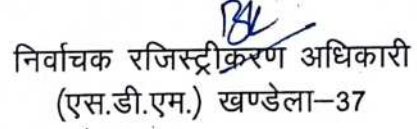 निर्वाचक रजिस्ट्रीकरण अधिकारी
(एस.डी.एम.) खण्डेला–37